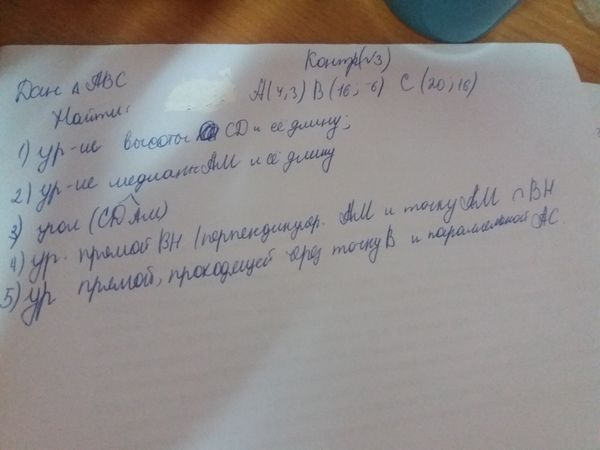 Контр(√3)
Дан △ ABC
A(4,3) B(16;-6) C(20;16)
Найти:
1) ур-ие высоты CD и её длину;
2) ур-ие медианы AM и её длину
3) угол (CD^AM)
4) ур. прямой BH (перпендикуляр. AM и точку AM ∩ BH
5) ур прямой, проходящей через точку B и параллельной AC.